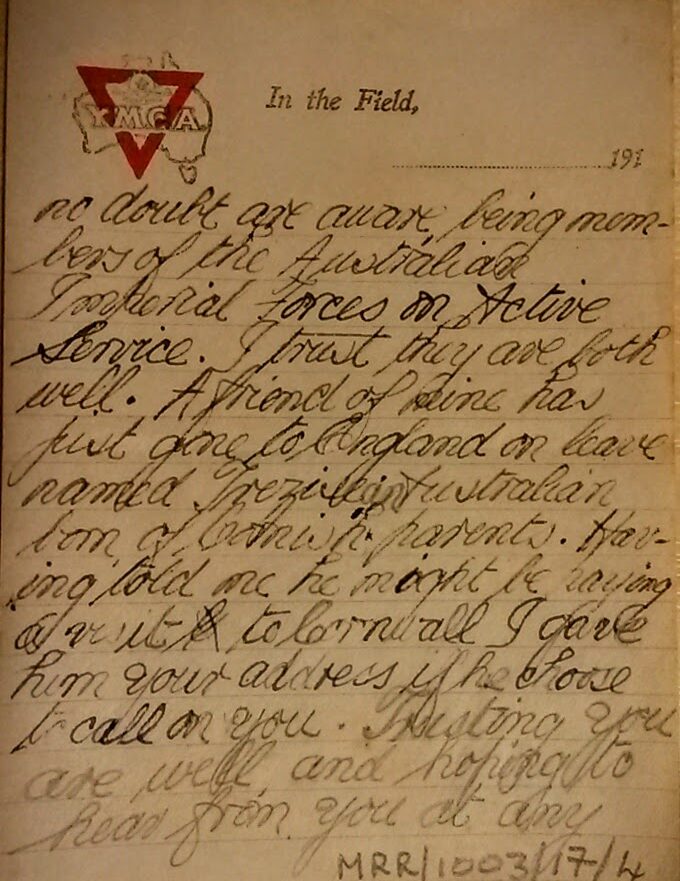 YMCA
In the Field,
191
no doubt are aware, being mem-
bers of the Australian
Imperial Forces on Active
Service. I trust they are both
well. A friend of mine has
just gone to England on leave
named Trezise an Australian
born of Cornish parents. Hav-
ing told me he might be paying
a visit to Cornwall I gave
him your address if he choose
to call on you. Trusting you
are well and hoping to
hear from you at any
MRR/1003/17/4